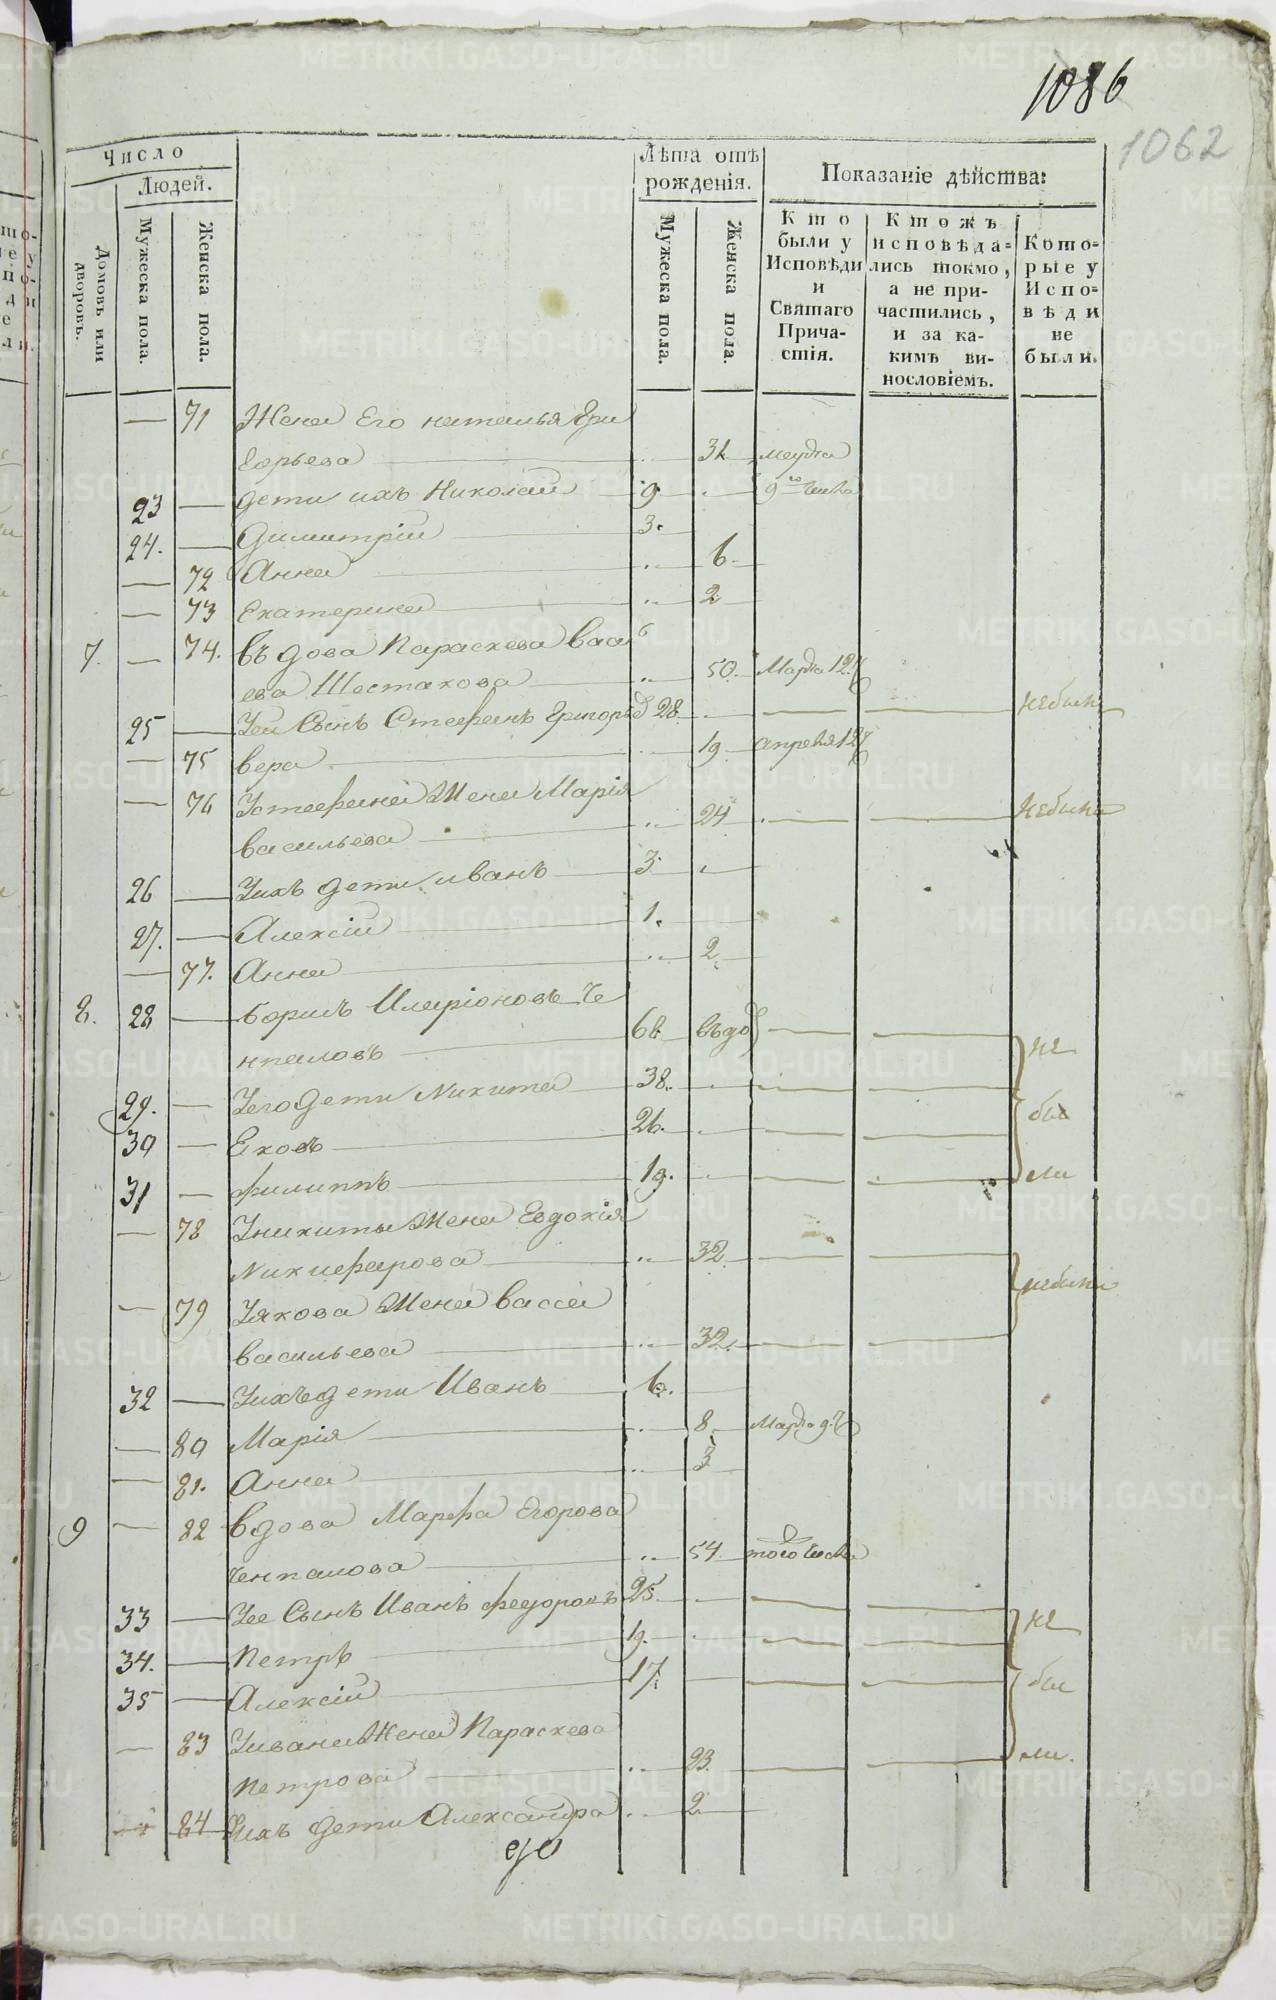 1086
1062
Число
Людей.
Домовъ или дворовъ.
Мужеска пола.
Женска пола.
Лѣта отъ рожденія.
Мужеска пола.
Женска пола.
Показаніе дѣйства:
Кто были у Исповѣди и Святаго Прича-стія.
Ктожъ исповѣда=лись токмо, а не при-частились, и за ка-кимъ ви-нословіемъ.
Кото=рые у Испо=вѣди не были.
71 Жена Его наталья Гри
Горьева 31 марта
23 дети ихъ Николай 9 9 го числа
24. Димитрій 3.
72 Анна 6.
73 Екатерина 2
7. 74. въдова Параскева васи
ева Шестакова 50. Марта 12
25 Уея Сынъ Стефанъ Григорь 28 небылъ
75 вера 19 апреля 12
76 Устефана Жена Марія
васильева 24 небыла
26 Уихъ дети иванъ 3
27. Алексій 1.
77. Анна 2
8. 28 борисъ Иларіоновъ Че
нпаловъ 68 въдо не
29. Уего дети Никита 38. бы
30 Яковъ 26.
31 филиппъ 19. ли
78 Уникиты Жена Евдокія
Никифарова 32
79 Уякова Жена васса небыли
васильева 32.
32 Уихъ дети Иванъ 6.
80 Марія 8 Марта 9.
81. Анна 3
9 82 вдова Марфа Егорова
Ченпалова 54 того числа
33 Уее Сынъ Иванъ федоровъ 25 не
34. Петръ 19.
35 Алексій 17. бы
83 Уивана Жена Параскева
Петрова 23. ли.
84 Уихъ дети Александра 2